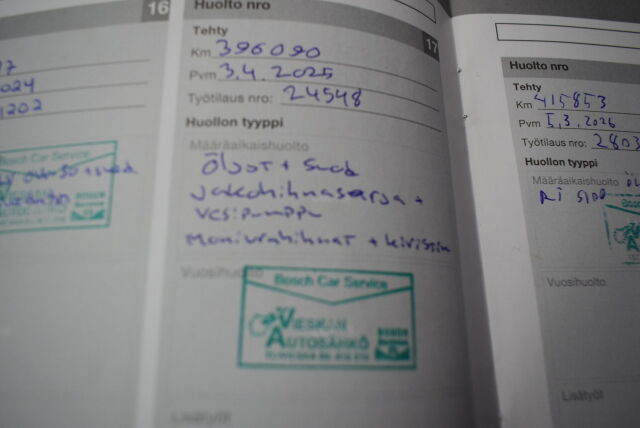 16
17
024
1202
Bosch Car Service
Huolto nro
17
Tehty
Km 396090
Pvm 3.4.2025
Työtilaus nro: 24548
Huollon tyyppi
Määräaikaishuolto
Öljyt + suod
Jakohihnasarja +
vesipumppu
Moniurahihnat + kiristin
Vuosihuolto
Bosch Car Service
VIESKAN
AUTOSÄHKÖ
Lisätyöt
Huolto nro
Tehty
Km 415853
Pvm 5.3.2026
Työtilaus nro: 2803
Huollon tyyppi
Määräaikaishuolto
Vuosihuolto
Lisätyöt